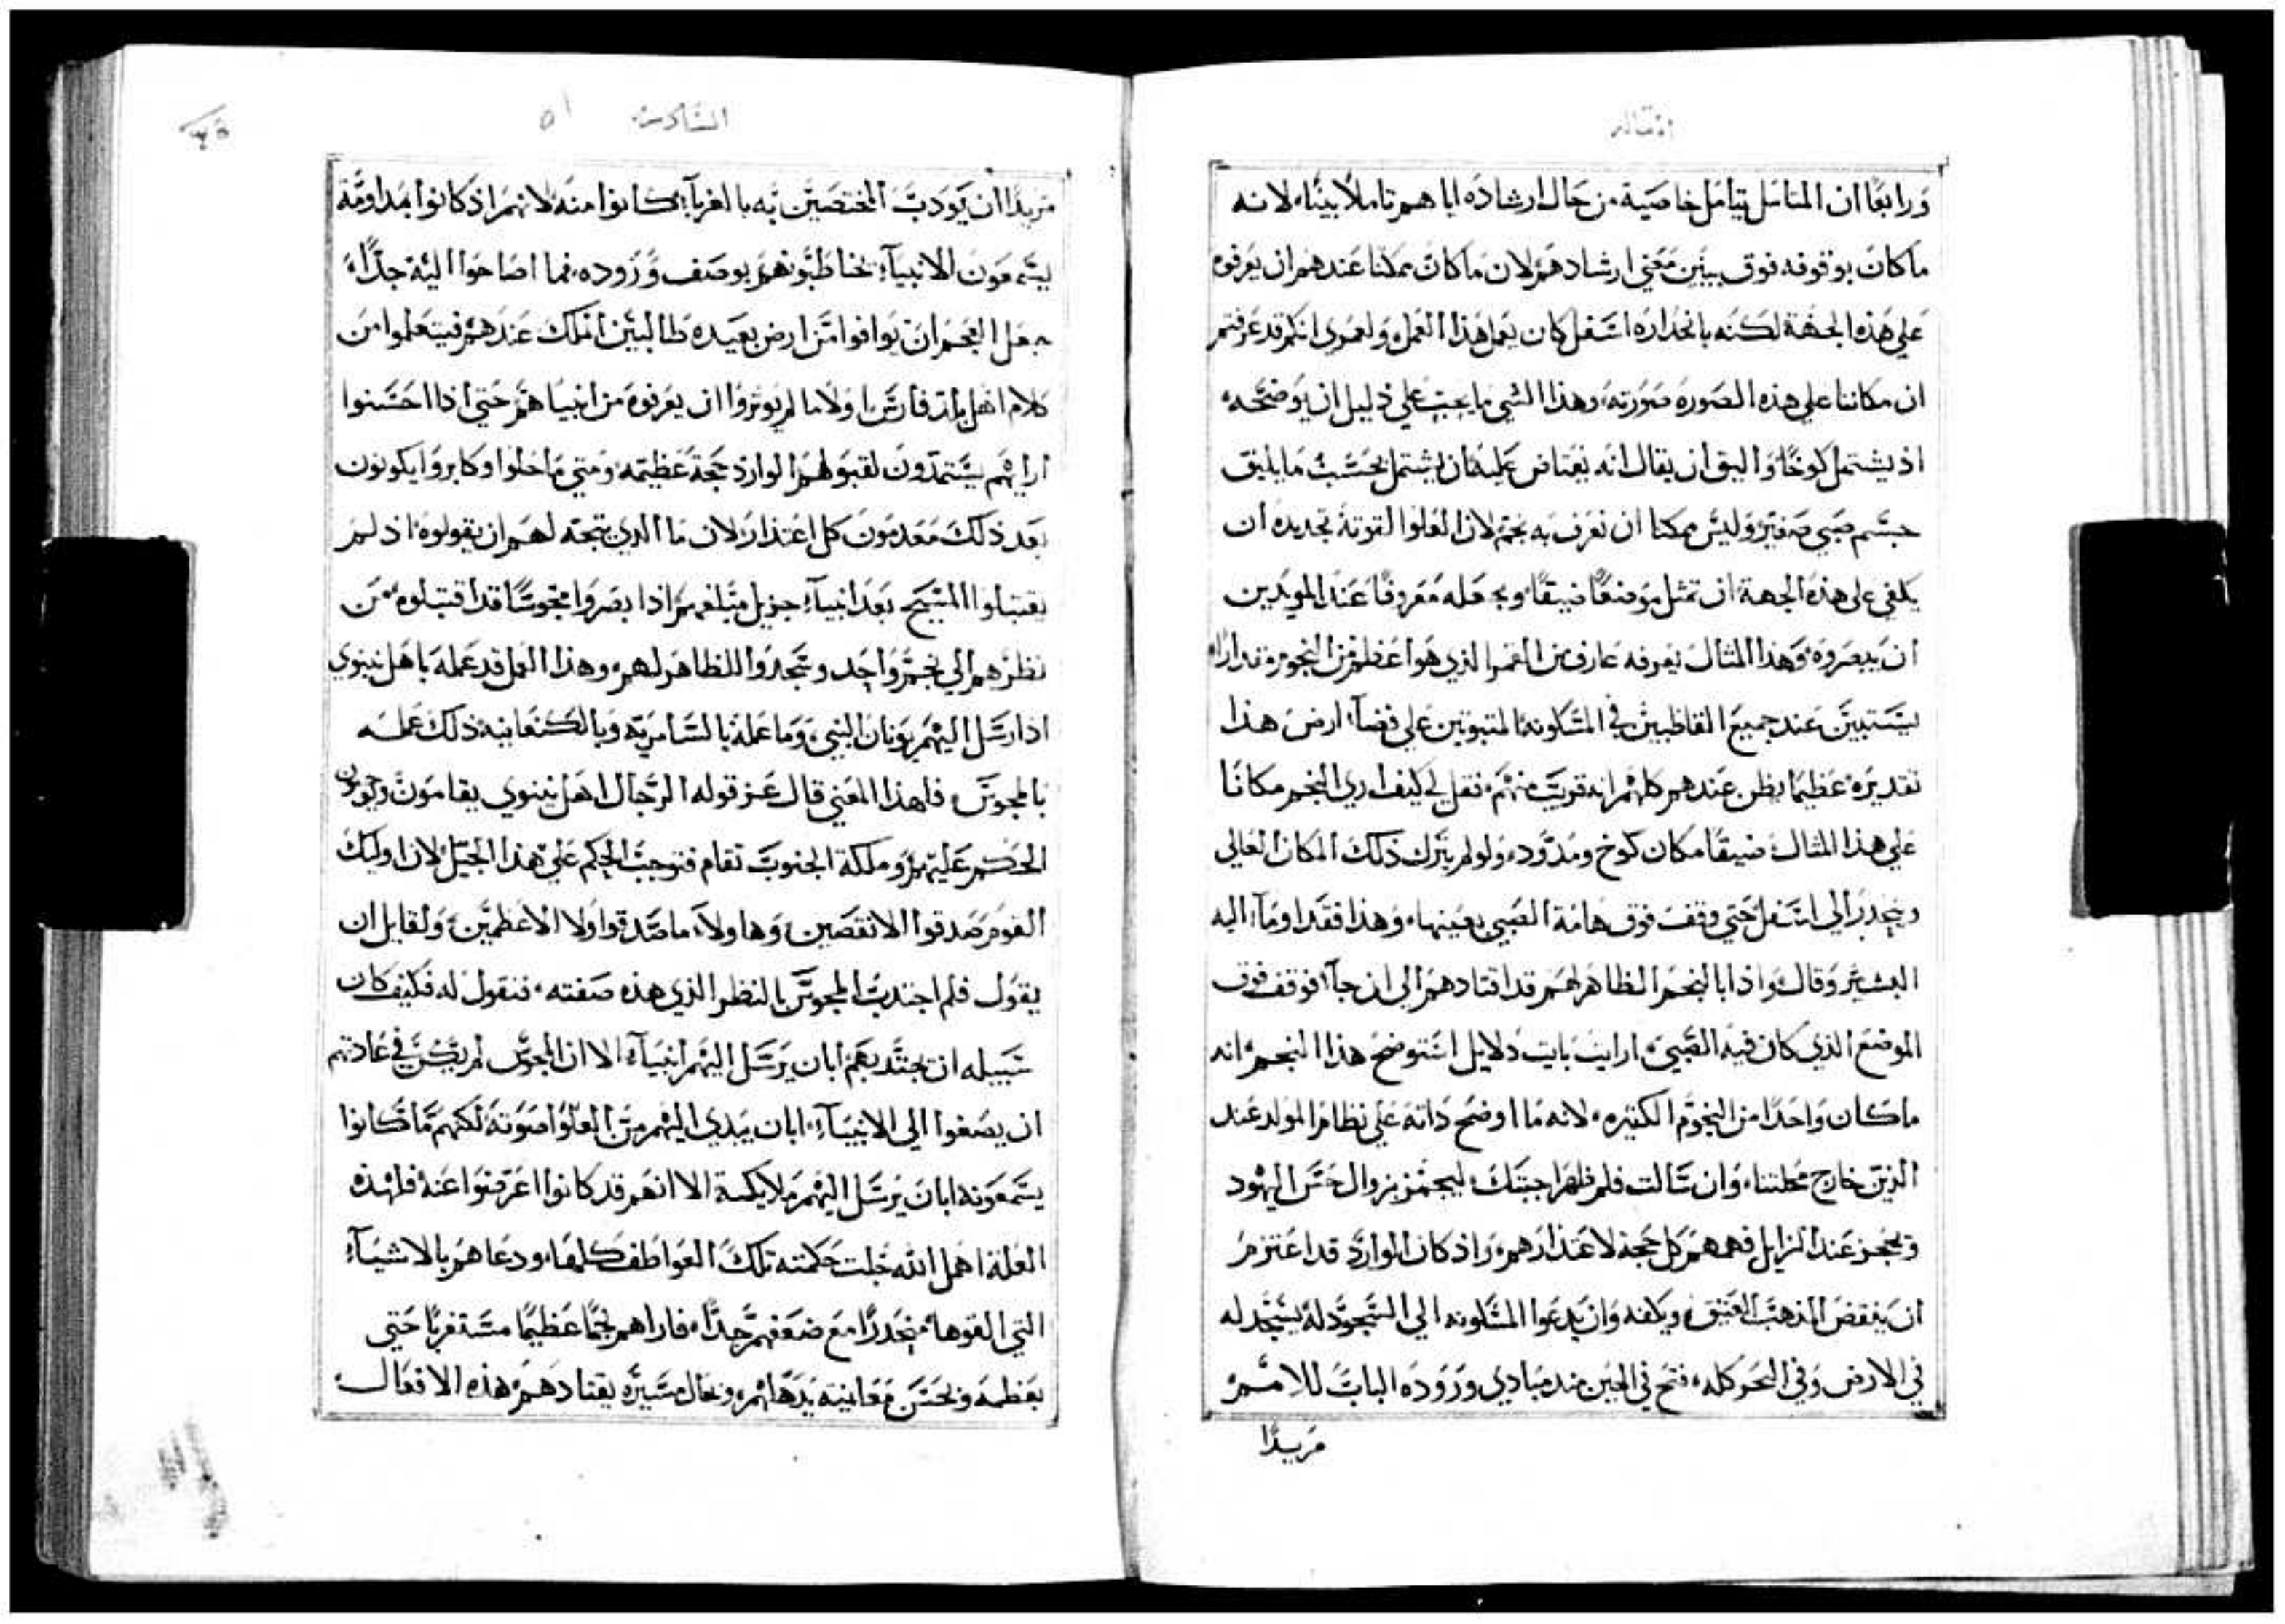 المقاله
ورابعًا ان المتامل يتامل خاصية من حال ارشاده اياهم تاملًا بينًا، لانه
ما كان بوقوفه فوق يبين معني ارشادهم لان ما كان ممكنا عندهم ان يعرفوه
علي هذه الجهة لكنه بانحداره اسفل كان يعمل هذا العمل ولعمري انكم قد عرفتم
ان مكاننا علي هذه الصوره صورته، وهذا الشي ما يجب علي ذليل ان يوضحه
اذ يشتمل كوخًا واليق ان يقال انه يعتاض عليه ان يشتمل بحسب ما يليق
جسم صبي صغير وليس ممكنا ان نعرف به نجم لان العلوا القوته تجديده ان
يكفي علي هذه الجهة ان تمثل موضعًا ضيقًا ويجعله معروفًا عند المويدين
ان يبصروه وهذا المثال يعرفه عارف من القمر الذي هوا عظم من النجوم
يستبين عند جميع القاطبين في المسكونه المتبوتين علي فضآء ارض هذا
تقديره عظيما يظن عندهم كلهم انه قريب منهم، فقل لي كيف اري النجم مكانًا
علي هذا المثال ضيقًا مكان كوخ ومدود، ولو لم يترك ذلك المكان العالي
وينحدر الي اسفل حتي وقف فوق هامة الصبي بعينها، وهذا فقد اومآء اليه
البشير وقال واذا بالنجم الظاهر لهم قد اقتادهم الي ان جآء فوقف فوق
الموضع الذي كان فيه الصبي، ارايت بايت دلايل استوضح هذا النجم انه
ما كان واحدًا من النجوم الكثيره، لانه ما اوضح داته علي نظام المولد عند
الذين خارج محلتنا، وان سالت فلم ظهر اجبتك ليجمز بزوال حس اليهود
ويحجز عند الزايل فهمهم كل حجة لاعتذارهم، واذ كان الوارد قد اعتزم
ان ينقض المذهب العتيق ويكفه وان يدعوا المسكونه الي السجود له يسجد له
في الارض وفي البحر كله، فتح في الحين منذ مبادي وروده الباب للامم
مريدًا
السادسه
٥١
مريدًا ان يودب المختصين به بالغربآء كانوا منه لانهم اذ كانوا بمداومة
يسمعون الانبيآء يخاطبونهم بوصف وروده، فما اصاخوا اليه جدًّا،
جعل العجم ان يوافوا من ارض بعيده طالبين الملك عندهم فيتعلموا من
كلام اهل بلد فارس اولا ما لم يوثروا ان يعرفوه من انبياهم حتي اذا احسنوا
ارايهم يستمدون لقبولهم الوارد حجة عظيمه ومتي ماحلوا وكابروا يكونون
بعد ذلك معدمون كل اعتذار لان ما الذي يتجه لهم ان يقولوه اذ لم
يقتبلوا المسيح بعد انبيآء جزيل مبلغهم اذا بصروا مجوسًا قد اقتبلوه من
نظرهم الي نجم واحد وسجدوا للظاهر لهم، وهذا العمل قد عمله باهل نينوي
اذ ارسل اليهم يونان النبي، وما عمله بالسامريه وبالكنعانيه ذلك عمله
بالمجوس، فلهذا المعني قال عز قوله الرجال اهل نينوي يقامون وتوجبون
الحكم عليهم، وملكة الجنوب تقام فتوجب الحكم علي هذا الجيل لان اوليك
القوم صدقوا الانقصين وهاولآء ما صدقوا ولا الاعظمين، ولقايل ان
يقول فلم اجتدب المجوس بالنظر الذي هذه صفته، فنقول له فكيف كان
سبيله ان يجتذبهم ابان يرسل اليهم انبيآء الا ان المجوس لم يكن في عادتهم
ان يصغوا الي الانبيآء، ابان يبدي اليهم من العلوا صوته لكنهم ما كانوا
يسمعونه ابان يرسل اليهم ملايكة الا انهم قد كانوا اعرضوا عنه فلهذه
العلة اهمل الله جلت حكمته تلك العواطف كلها، ودعاهم بالاشيآء
التي الفوها منحدرًا مع ضعفهم جدًّا، فاراهم نجمًا عظيمًا مستغربًا حتي
بعظمه وبحسن معاينته يدهلهم، وبحال مسيره يقتادهم هذه الافعال